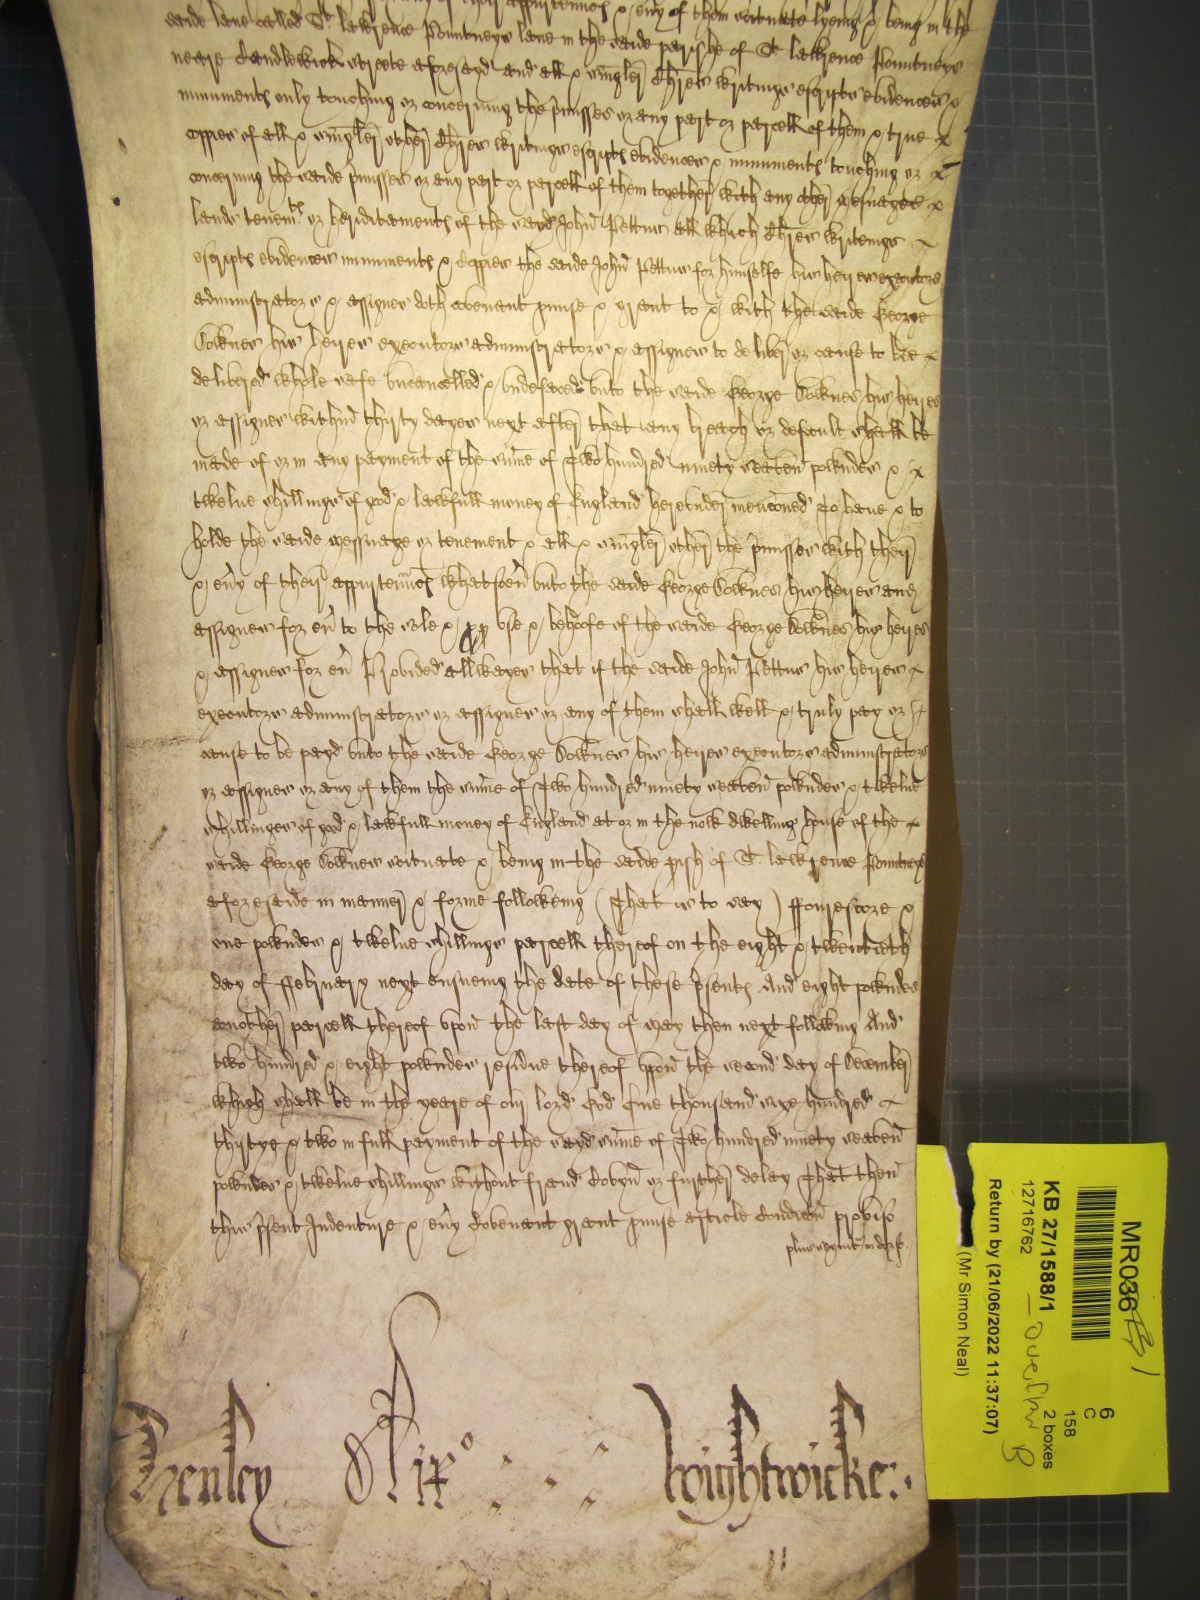 appurtennces & eny of them scituate lyeing & being in the
saide lane called St. Lawrence Pountneys lane in the saide parishe of St. Lawrence Pountneys
neare Candlewick streete aforesayd And all & singler Chres writings escripts evidences &
muniments only touching or concerning the pmisses or any part or parcell of them & true
coppies of all & singler other Chres writings escripts evidences & muniments touching or
concerning the saide pmisses or any part or parcell of them together with any other messuages
lands tenemts or hereditaments of the sayd John Pettus all which Chres writeings
escripts evidences muniments & Coppies the saide John Pettus for himselfe his heires executors
administrators & assignes doth covenant pmise & graunt to & with the saide George
Dolknes his heires executors administrators & assignes to deliver or cause to bee
delivered whole safe uncancelled & undefaced unto the saide George Dolknes his heires
or assignes within thirty dayes next after that any breach or default shall be
made of or in any payment of the sume of Two hundred ninety seaven powndes &
twelue shillings of good & lawfull money of England hereunder menconed To haue & to
holde the saide messuage or tenement & all & singler other the pmisses with their
& eny of their appurtennces whatsoeu unto the saide George Dolknes his heires and
assignes for eu to the sole & pp use & behoofe of the saide George Dolknes his heires
& assignes for eu Provided allwayes that if the saide John Pettus his heires
executors administrators or assignes or any of them shall well & truly pay or
cause to be payd unto the saide George Dolknes his heires executors administrators
or assignes or any of them the sume of Two hundred ninety seaven powndes & twelue
shillinges of good & lawfull money of England at or in the now dwelling house of the
saide George Dolknes scituate & being in the saide pish of St. Lawrence Pountneys
aforesaide in manner & forme following (That is to say) ffourescore &
one powndes & twelue shillings parcell thereof on the eight & twentieth
day of ffebruary next ensueing the date of these psents And eight powndes
another parcell thereof upon the last day of May then next following And
two hundred & eight powndes residue thereof upon the second day of December
which shall be in the yeare of our lord God One thousand sixe hundred
thirtye & two in full payment of the sayd sume of Two hundred ninety seaven
powndes & twelue shillings without fraud Covyn or further delay That then
this psent Indenture & eny Covenant graunt pmise article Condicon proviso
plus sequit in dorso
Henley Rixo Wightwicke:.
MR036
KB 27/1588/1
12716762
Return by (21/06/2022 11:37:07)
(Mr Simon Neal)
6
C
158
2 boxes